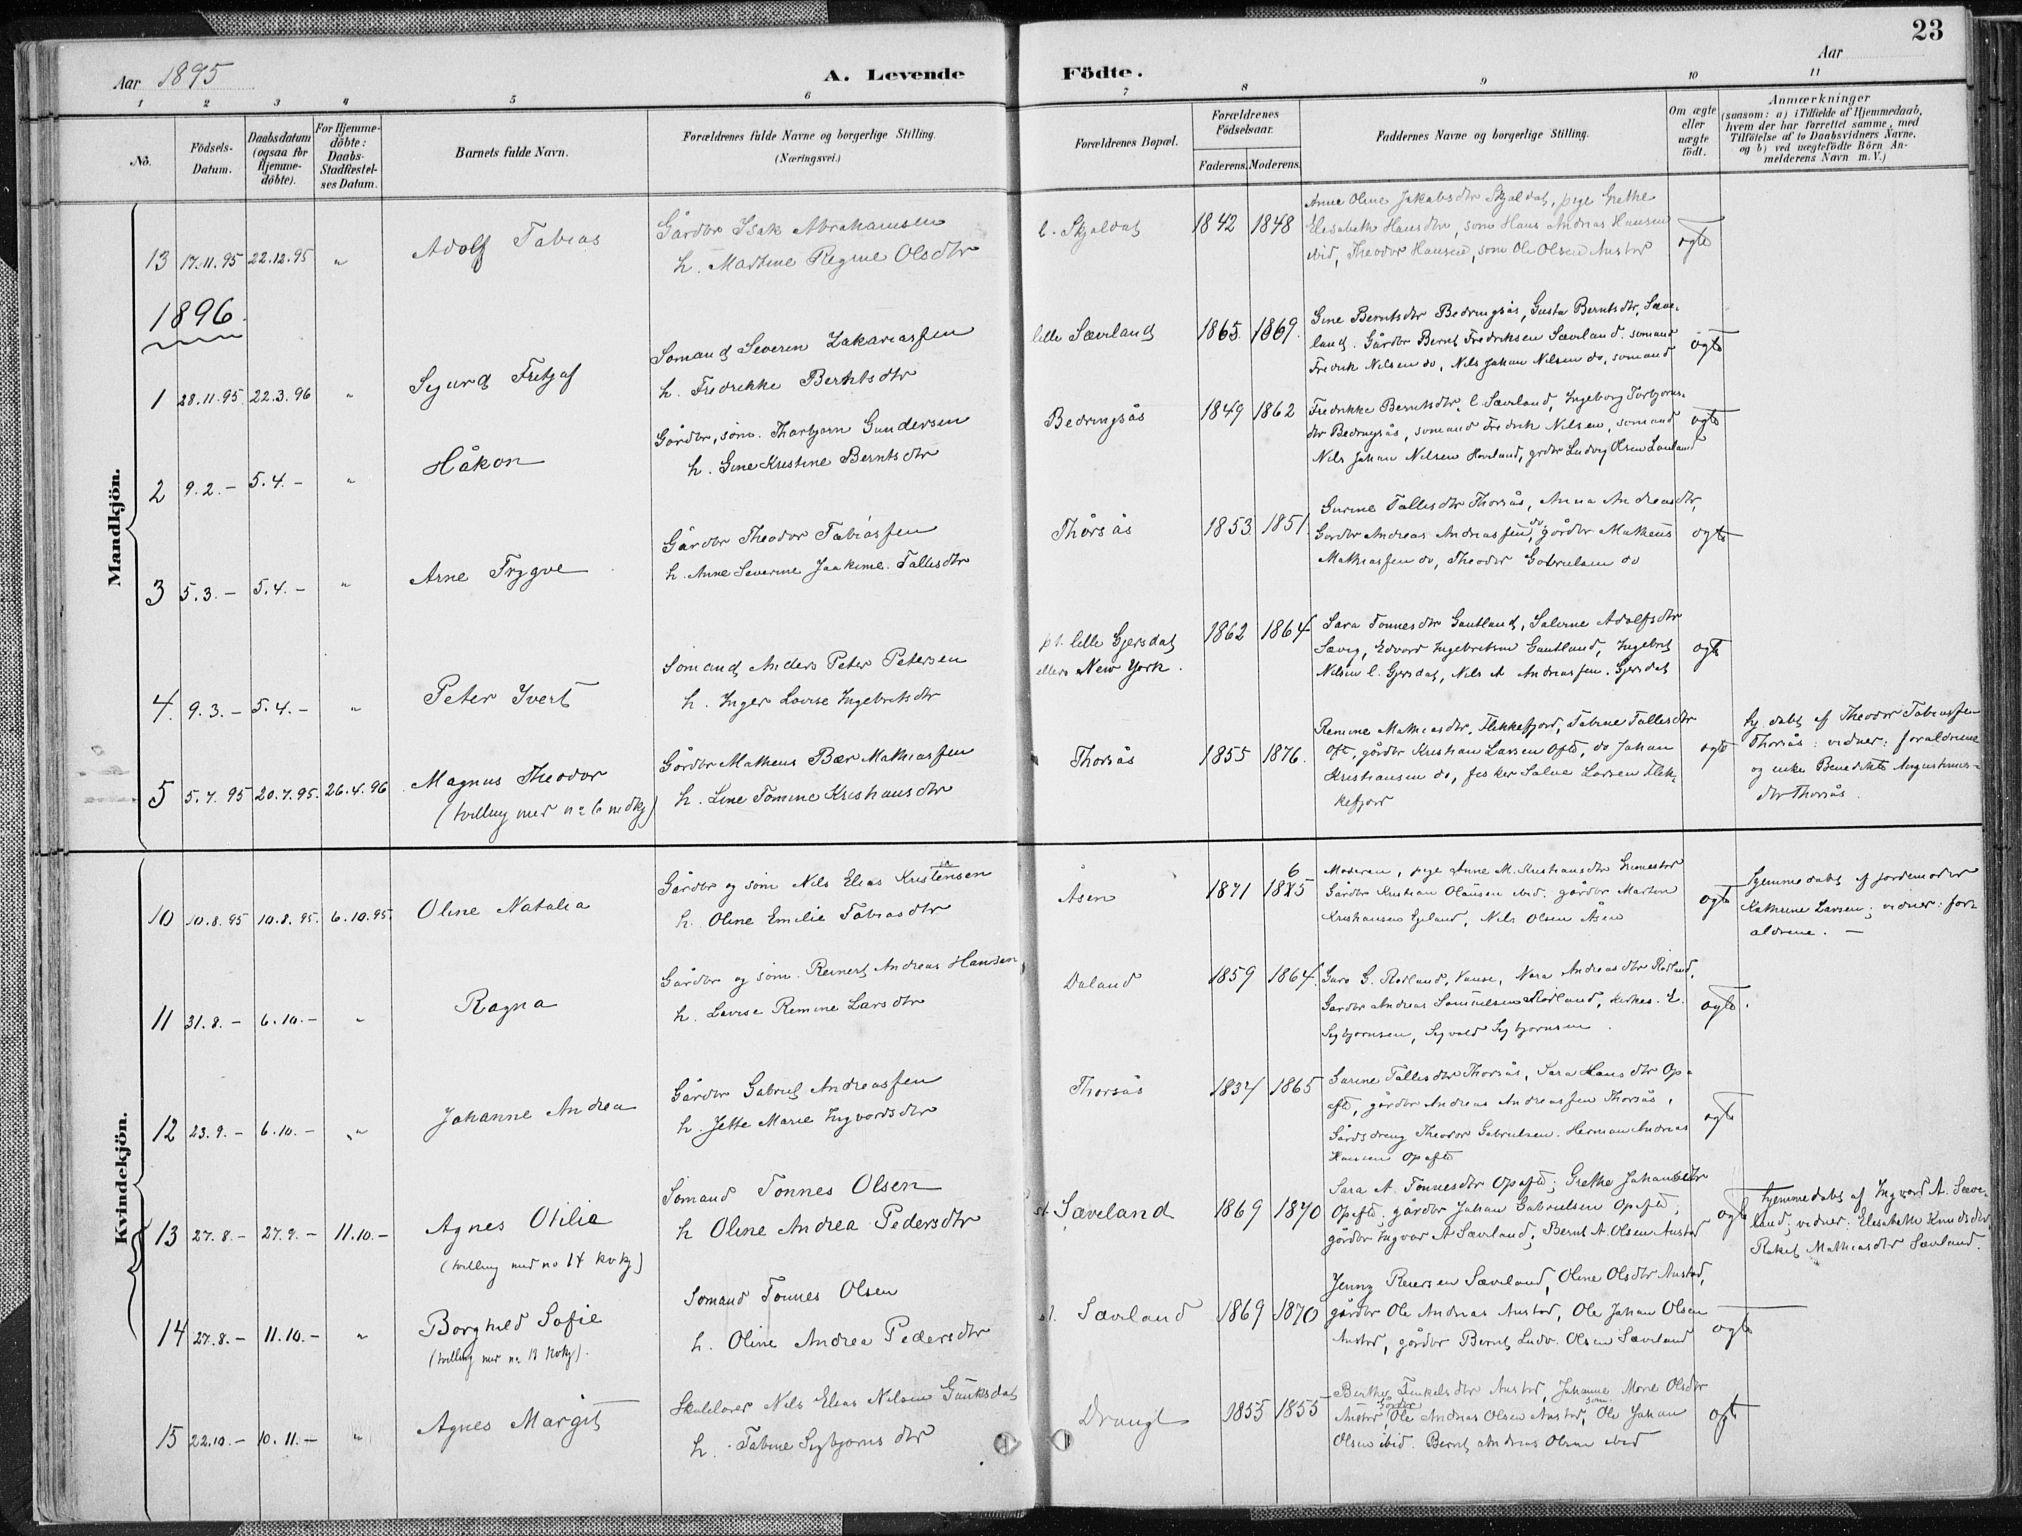 23
Aar 1895
A. Levende
Födte.
Aar
1 2 3 4 5 6 7 8 9 10 11
No.
Födsels-Datum.
Daabsdatum (ogsaa for Hjemme-döbte).
For Hjemme-döbte: Daabs-Stadfæstel-ses Datum.
Barnets fulde Navn.
Forældrenes fulde Navne og borgerlige Stilling.
(Næringsvei.)
Forældrenes Bopæl.
Forældrenes Födselsaar.
Faderens. Moderens.
Faddernes Navne og borgerlige Stilling.
Om ægte eller uægte födt.
Anmærkninger
(saasom: a) i Tilfælde af Hjemmedaab,
hvem der har forrettet samme, med
Tilföielse af to Daabsvidners Navne,
og b) ved uægtefödte Börn An-
melderens Navn m. V.)
Mandkjön.
13 17.11.95 22.12.95 " Adolf Tobias
Gårdbr Isak Abrahamsen
h. Martine Regine Olsdtr
l. Skjeldal 1842 1848
Anne Oline Jakobsdtr Skjeldal, pige Grethe
Elisabeth Hansdtr, søm Hans Andreas Hansen
ibid, Theodor Hansen, søm Ole Olsen Austad
ægte
1896.
1 28.11.95 22.3.96 " Sigurd Fritjof
Sømand Severin Zakariassen
h. Fredrikke Berntsdtr
lille Sæveland 1865 1869
Gine Berntsdtr Bedringsås, Gusta Berntsdtr Sæve-
land. Gårdbr Bernt Fredriksen Sæveland. sømand
Fredrik Nilsen do, Nils Johan Nilsen do, sømand
ægte
2 9.2.- 5.4.- " Håkon
Gårdbr, søm. Thorbjørn Gundersen
h. Gine Kristine Berntsdtr
Bedringsås 1849 1862
Fredrikke Berntsdtr l. Sæveland, Ingeborg Torbjørns-
dtr Bedringsås, sømand Fredrik Nilsen, sømand
Nils Johan Nilsen, grdbr Ludvig Olsen
ægte
3 5.3.- 5.4.- " Arne Trygve
Gårdbr Theodor Tobiassen
h. Anne Severine Joakime Tallesdtr
Thorsås 1853 1851
Gurine Tallesdtr Thorsås, Anna Andreasdtr,
Gardbr Andreas Andreassen do, gårdbr Matheus
Mathiassen do, Theodor Gabrielsen do
ægte
4. 9.3.- 5.4.- " Peter Ivert
Sømand Anders Peter Petersen
h. Inger Lovise Ingebretsdtr
pt. lille Gjersdal
ellers New York. 1862 1864
Sara Tønnesdtr Gautland, Salerne Adolfsdtr
Sævig, Edvard Ingebretsen Gautland, Ingebret
Nilsen l. Gjersdal, Nils A Andreassen. Gjersdal
ægte
5 5.7.95 20.7.95. 26.4.96 Magnus Theodor
(tvilling med no 6 mdkj)
Gårdbr Matheus Bær Mathiassen
h. Line Tomine Kristiansdtr
Thorsås 1855 1876.
Remine Mathiasdtr, Flekkefjord, Tobine Tallesdtr
Ofte, gårdbr Kristian Larsen Ofte, do Johan
Kristiansen do, fisker Salve Larsen Flek-
kefjord
ægte
hj. døbt af Theodor Tobiassen
Thorsås: vidner: forældrene
og enke Benedikte Augustinus-
dtr Thorsås.
Kvindekjön.
10 10.8.95 10.8.95. 6.10.95. Oline Natalia
Gårdbr og søm Nils Elias Kristensen
h. Oline Emilie Tobiasdtr
Åsen 1871 1865
Moderen, pige Anne M. Kristiansdtr
Gårdbr Kristian Olausen ibid. gårdbr Martin
Kristiansen Egeland, Nils Olsen Åsen
ægte
hjemmedøbt af jordemoder
Kathrine Larsen; vidner: for-
ældrene. —
11 31.8.- 6.10.- " Ragna
Gårdbr og søm. Reinert Andreas Hansen
h. Lovise Remine Larsdtr
Daland 1859 1864.
Guro G. Rødland, Vanse, Nora Andreasdtr Rødland,
Gardbr Andreas Samuelsen Rødland, kirkes. E.
Sigbjørnsen, Sigvald Sigbjørnsen.
ægte.
12 23.9.- 6.10.- " Johanne Andrea
Gårdbr Gabriel Andreassen
h. Jette Marie Ingvardsdtr
Thorsås 1834 1865
Gurine Tallesdtr Thorsås, Sara Hansdtr Op-
ofte, gårdbr Andreas Andreassen Thorsås,
Gårdsdreng Theodor Gabrielsen. Herman Andreas
Hansen Opofte
ægte
13 27.8.- 27.9.- 11.10.- Agnes Otilie
(tvilling med no 14 kvkj)
Sømand Tønnes Olsen
h Oline Andrea Pedersdtr
st. Sæveland 1869 1870
Sara A. Tønnesdtr Opofte; Grethe Johansdtr
Opofte; gårdbr Johan Gabrielsen Opofte;
gårdbr Ingvar A Sæveland; Bernt A. Olsen Austad
ægte
hjemmedøbt af Ingvard A. Sæve-
land; vidner: Elisabeth Knudsdtr,
Rakel Mathiasdtr Sæveland.
14 27.8.- 11.10.- " Borghild Sofie
(tvilling med no 13 kvkj).
Sømand Tønnes Olsen
h. Oline Andrea Pedersdtr
st. Sæveland 1869 1870
Jenny Reiersen Sæveland, Oline Olsdtr Austad,
gårdbr Ole Andreas Austad, Ole Johan Olsen
Austad, gårdbr Bernt Ludv. Olsen Sæveland
ægte
15 22.10.- 10.11.- " Agnes Margit
Skolelærer Nils Elias Nilsen Gauksdal
h. Tobine Sigbjørnsdtr
Drangl 1855 1855
Berthe Tinkelsdtr Austad, Johanne Marie Olsdtr
Austad, Gårdbr Ole Andreas Olsen Austad, søm. Ole Johan
Olsen ibid. Bernt Andreas Olsen ibid
ægt